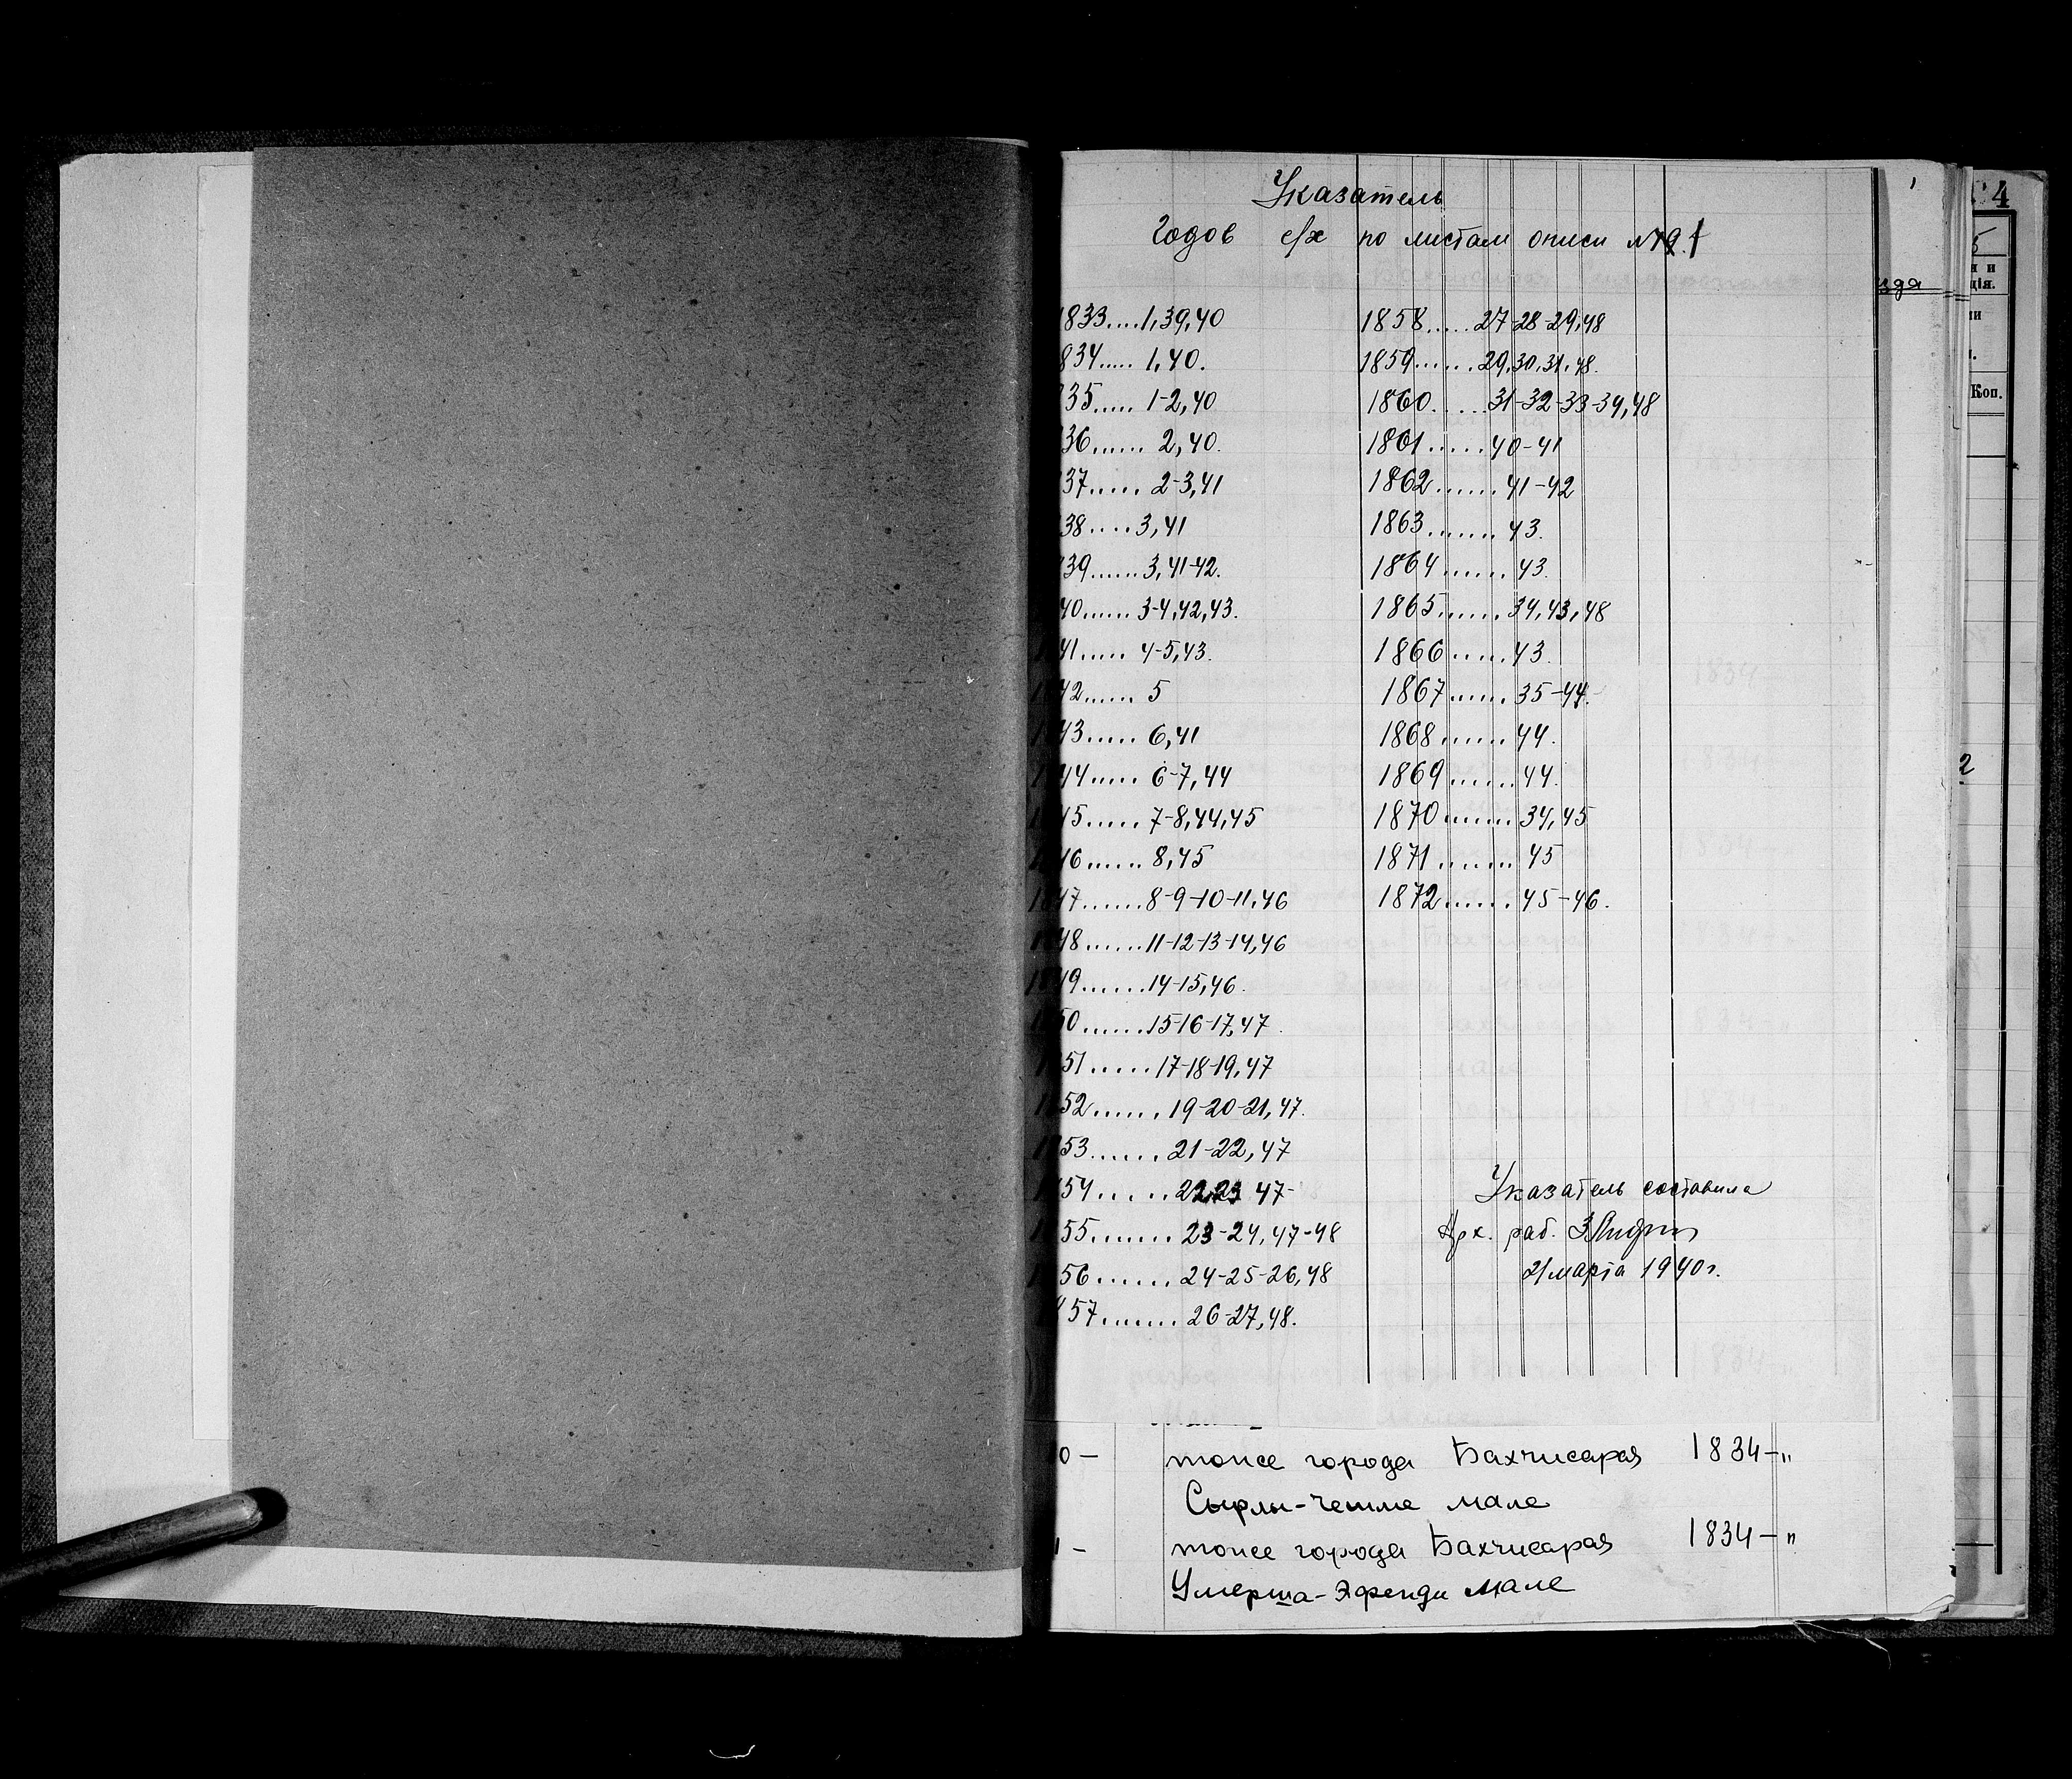 Указатель
Годов с/х по листам описи №
1833....1,39,40
834..... 1,40.
35..... 1-2,40
36...... 2,40.
37..... 2-3,41
38.....3,41
39......3,41-42.
40......3-4,42,43.
41..... 4-5,43.
42...... 5
43..... 6,41
44..... 6-7,44
45..... 7-8,44,45
46...... 8,45
1847......8-9-10-11,46
1848......11-12-13-14,46
1849......14-15,46.
1850......15-16-17,47.
51......17-18-19,47
1852......19-20-21,47.
1853......21-22,47
1854......22,23 47-
1855.......23-24,47-48
1856.......24-25-26,48
1857.......26-27,48.
1858.....27-28-29,48
1859......29,30,31,48.
1860.....31-32-33-34,48
1861.....40-41
1862......41-42
1863.......43.
1864......43.
1865......34,43,48
1866.....43.
1867......35-44.
1868......44.
1869......44.
1870.......34,45
1871.......45
1872......45-46.
Указатель составила
Арх. раб.
21 марта 1940г.
0 — тоже города Бахчисарая 1834—"
Сырлы-чешме мале
1 - тоже города Бахчисарая 1834—"
Умерша-Эфенди мале
зда
4
ція.
Коп.
2